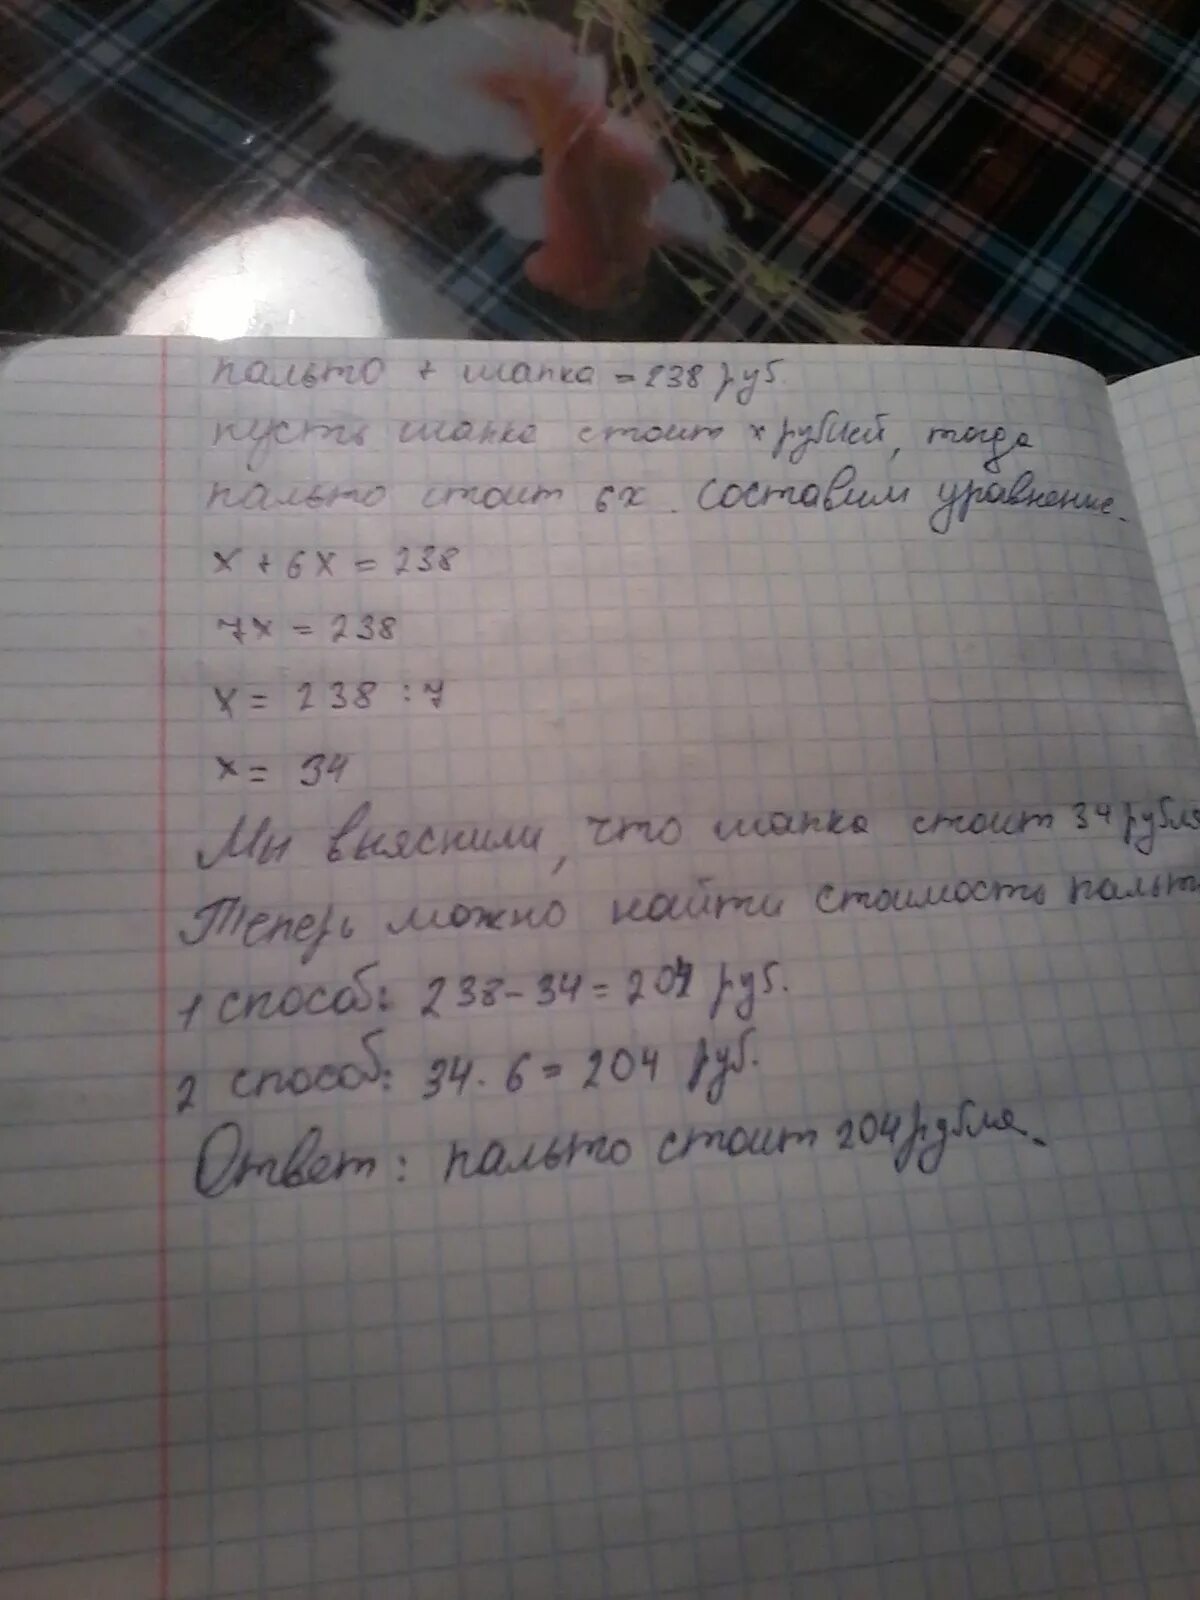 пальто + шапка = 238 руб.
пусть шапка стоит х рублей, тогда
пальто стоит 6х. составим уравнение.
х + 6х = 238
7х = 238
х = 238 : 7
х = 34
Мы выяснили, что шапка стоит 34 рубля
Теперь можно найти стоимость пальто
1 способ: 238 - 34 = 204 руб.
2 способ: 34 · 6 = 204 руб.
Ответ: пальто стоит 204 рубля.